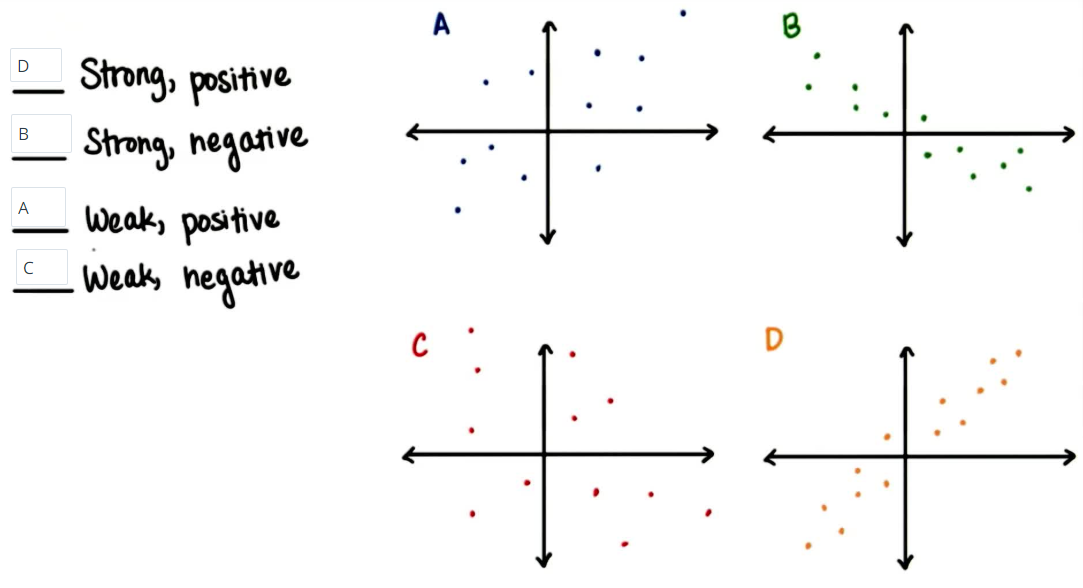 D Strong, positive
B Strong, negative
A Weak, positive
C Weak, negative
A
B
C
D